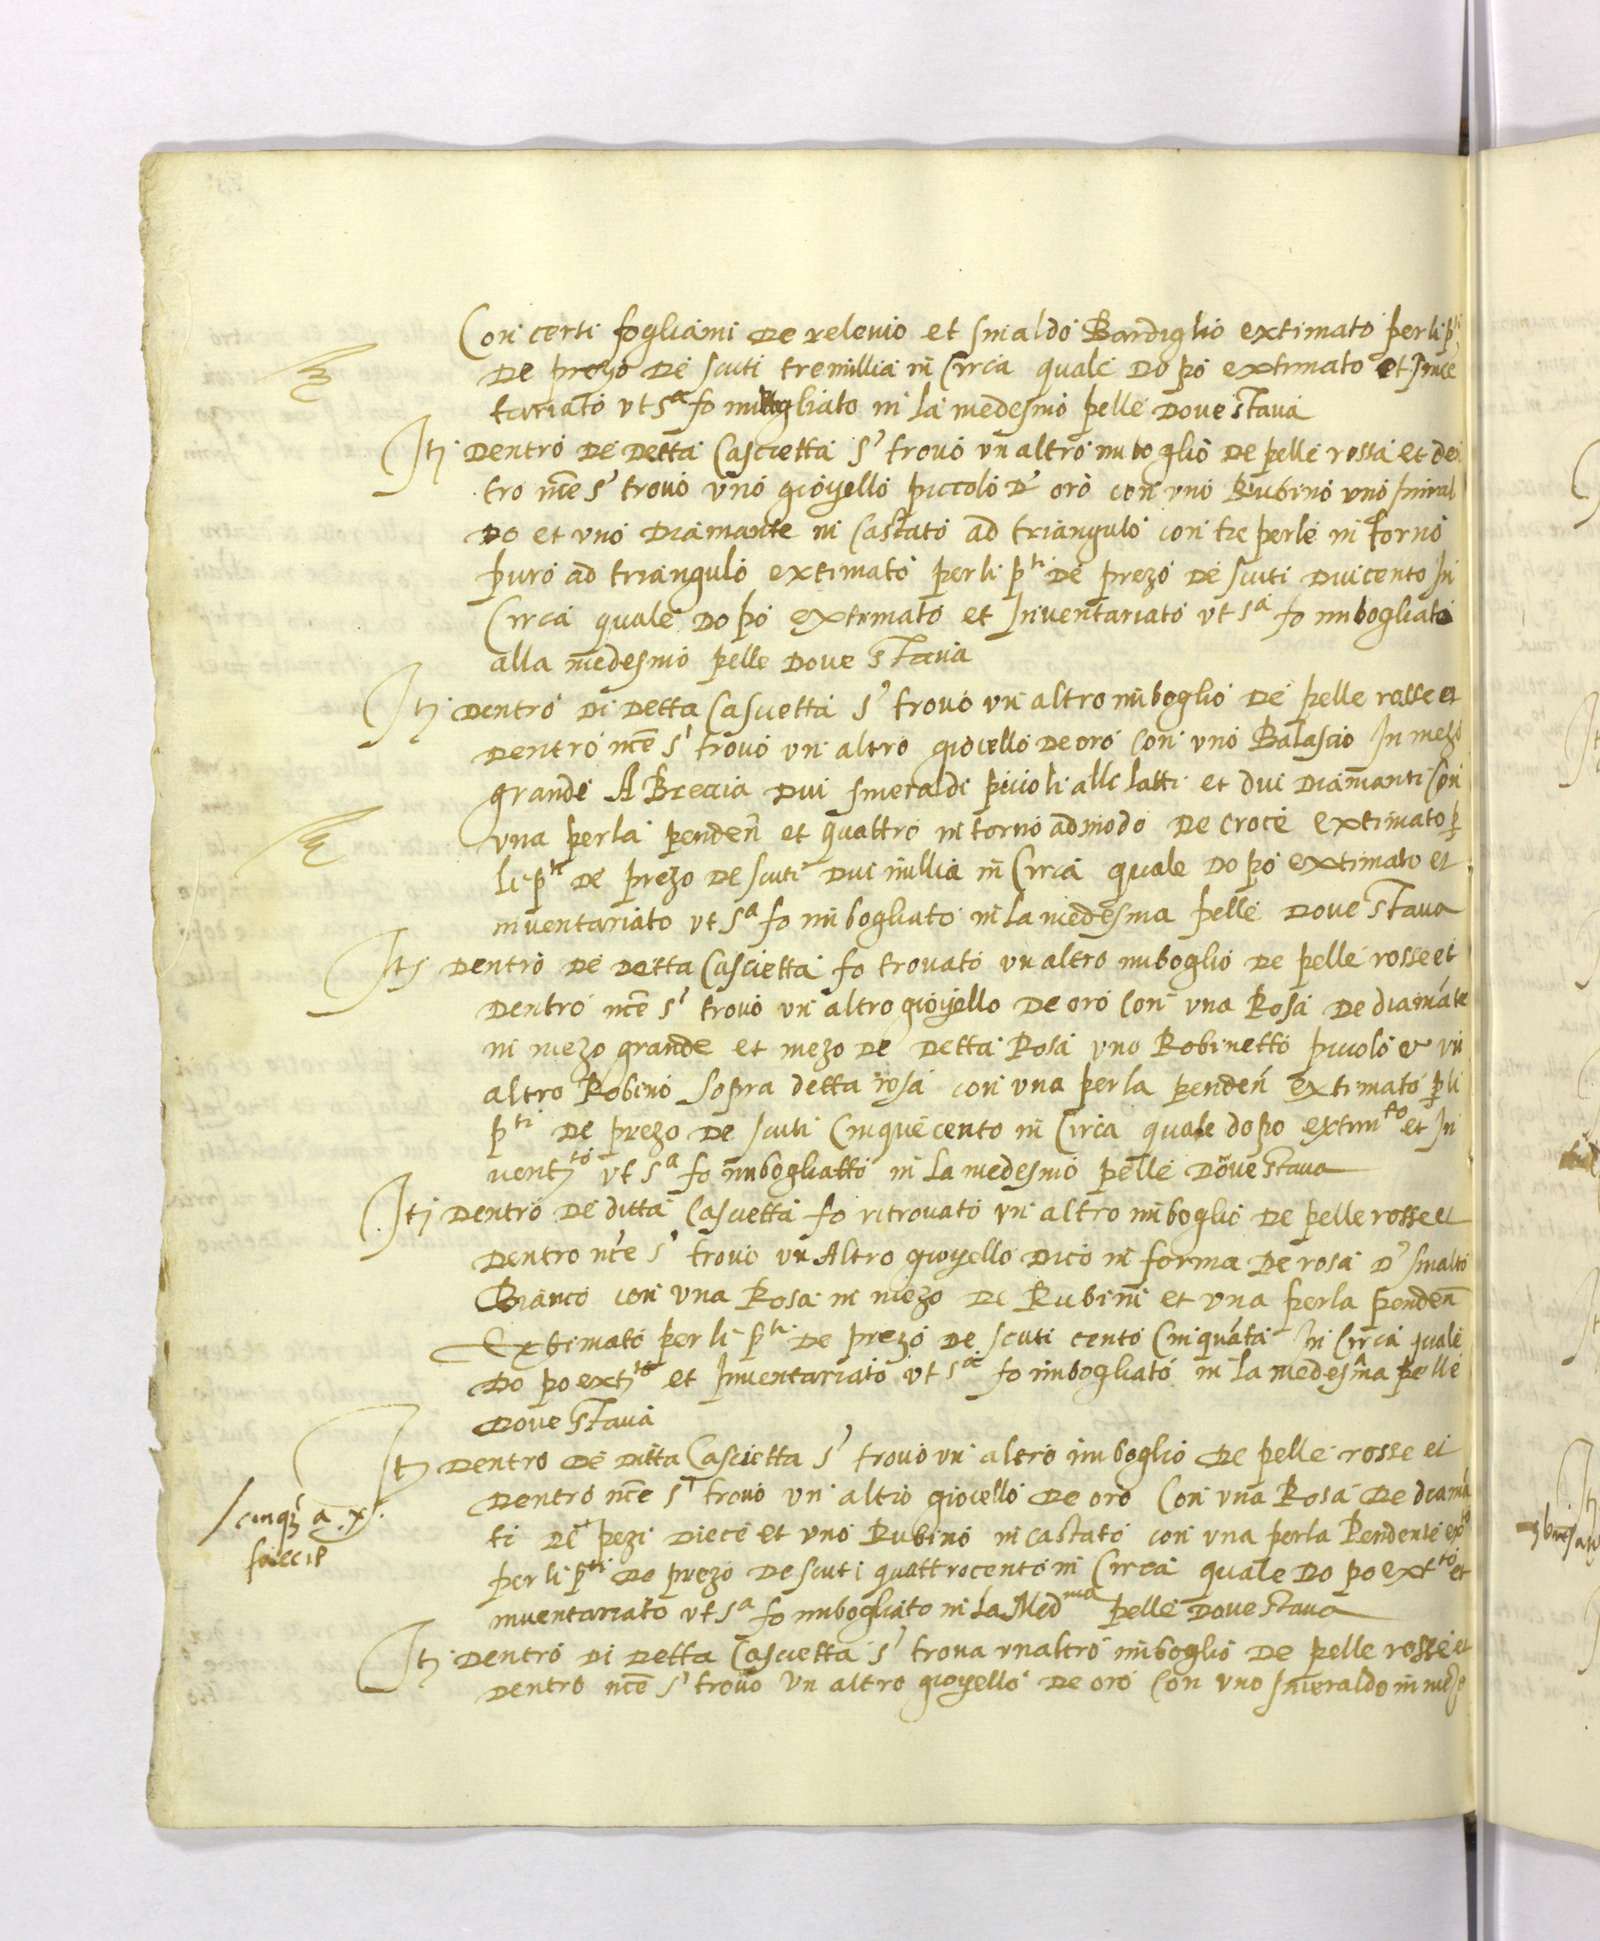 Con certi fogliami de relevio et smaldo Bardiglio extimato per li p^ti
de prezo de scuti tremillia in Circa quale do po extimato et Inve
tariato ut s^a fo imbogliato in la medesmo pelle dove stava
Itj dentro de detta Cascietta s' trovo un altro imboglio de pelle rossa et de
tro nce s' trovo uno gioyello piccolo d' oro con uno Rubino uno smiral
do et uno Diamante in Castato ad triangulo con tre perle in torno
puro ad triangulo extimato per li p^ti de prezo de scuti duicento In
Circa quale do po extimato et Inventariato ut s^a fo imbogliato
alla medesmo pelle dove stava
Itj dentro di detta Cascietta s' trovo un altro imboglio de pelle rosse et
dentro nce s' trovo un altro giocello de oro con uno Balascio In mezo
grande A Breccia dui smeraldi piccoli alli latti et dui Diamanti Con
una perla penden et quattro in torno ad modo de croce extimato p
li p^ti de prezo de scuti dui millia in Circa quale do po extimato et
inventariato ut s^a fo imbogliato in la medesma pelle dove stava
Itj dentro de detta Cascietta fo trovato un altro imboglio de pelle rosse et
dentro nce s' trovo un altro gioyello de oro con una Rosa de diamate
in mezo grande et mezo de detta Rosa uno Robinetto piccolo et un
altro Robino sopra detta rosa con una perla penden extimato p li
p^ti de prezo de scuti Cinquecento in Circa quale do po extim^to et In
vent^to ut s^a fo imbogliatto in la medesmo pelle dove stava
Itj dentro de ditta Cascietta fo ritrovato un altro imboglio de pelle rosse et
dentro nce s' trovo un Altro gioyello dico in forma de rosa d' smalto
Bianco con una Rosa in mezo de Rubini et una perla penden
Extimato per li p^ti de prezo de scuti cento Cinquata In Circa quale
do po ext^to et Inventariato ut s^a fo imbogliato in la medesma pelle
dove stava
Itj dentro de ditta Cascietta s' trovo un altro imboglio de pelle rosse et
dentro nce s' trovo un altro giocello de oro Con una Rosa de diama
ti de pezi diece et uno Rubino in castato con una perla Pendente ex^to
per li p^ti de prezo de scuti quattrocento in Circa quale do po ext^to et
inventariato ut s^a fo imbogliato in la Med^ma pelle dove stava
Itj dentro di detta Cascietta s' trova un altro imboglio de pelle rosse et
dentro nce s' trovo un altro gioyello de oro Con uno smeraldo in mezo